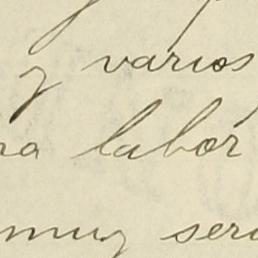 y varios
na labor
muy seri